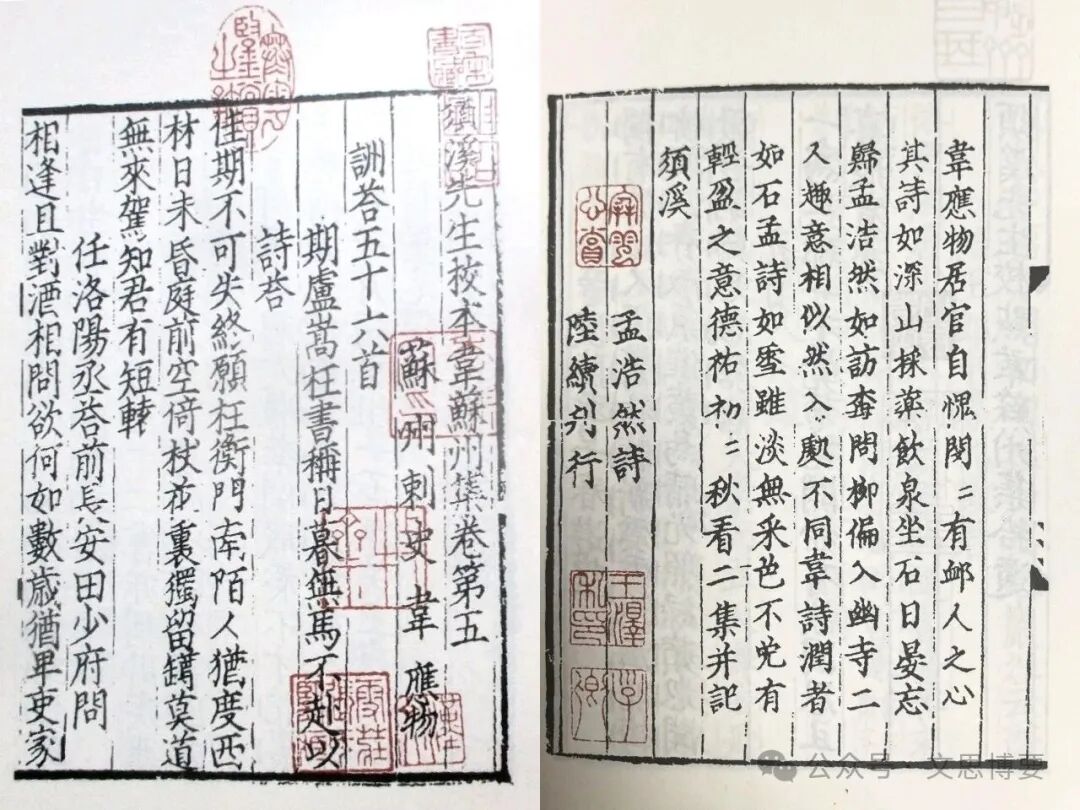 韋應物居官自愧閔〻有䘏人之心
其詩如深山採藥飲泉坐石日晏忘
歸孟浩然如訪梅問柳偏入幽寺二
人趣意相似然入處不同韋詩潤者
如石孟詩如雪雖淡無采色不免有
輕盈之意德祐初〻秋看二集并記
須溪
孟浩然詩
陸續刋行
須溪先生校本韋蘇州集卷第五
蘇州刺史 韋 應物
詶荅五十六首
期盧嵩枉書稱日暮無馬不赴以
詩荅
佳期不可失終願枉衡門南陌人猶度西
材日未昏庭前空倚杖花裏獨留罇莫道
無來駕知君有短轅
任洛陽丞荅前長安田少府問
相逢且對酒相問欲何如數歲猶卑吏家
公众号 · 文思博要